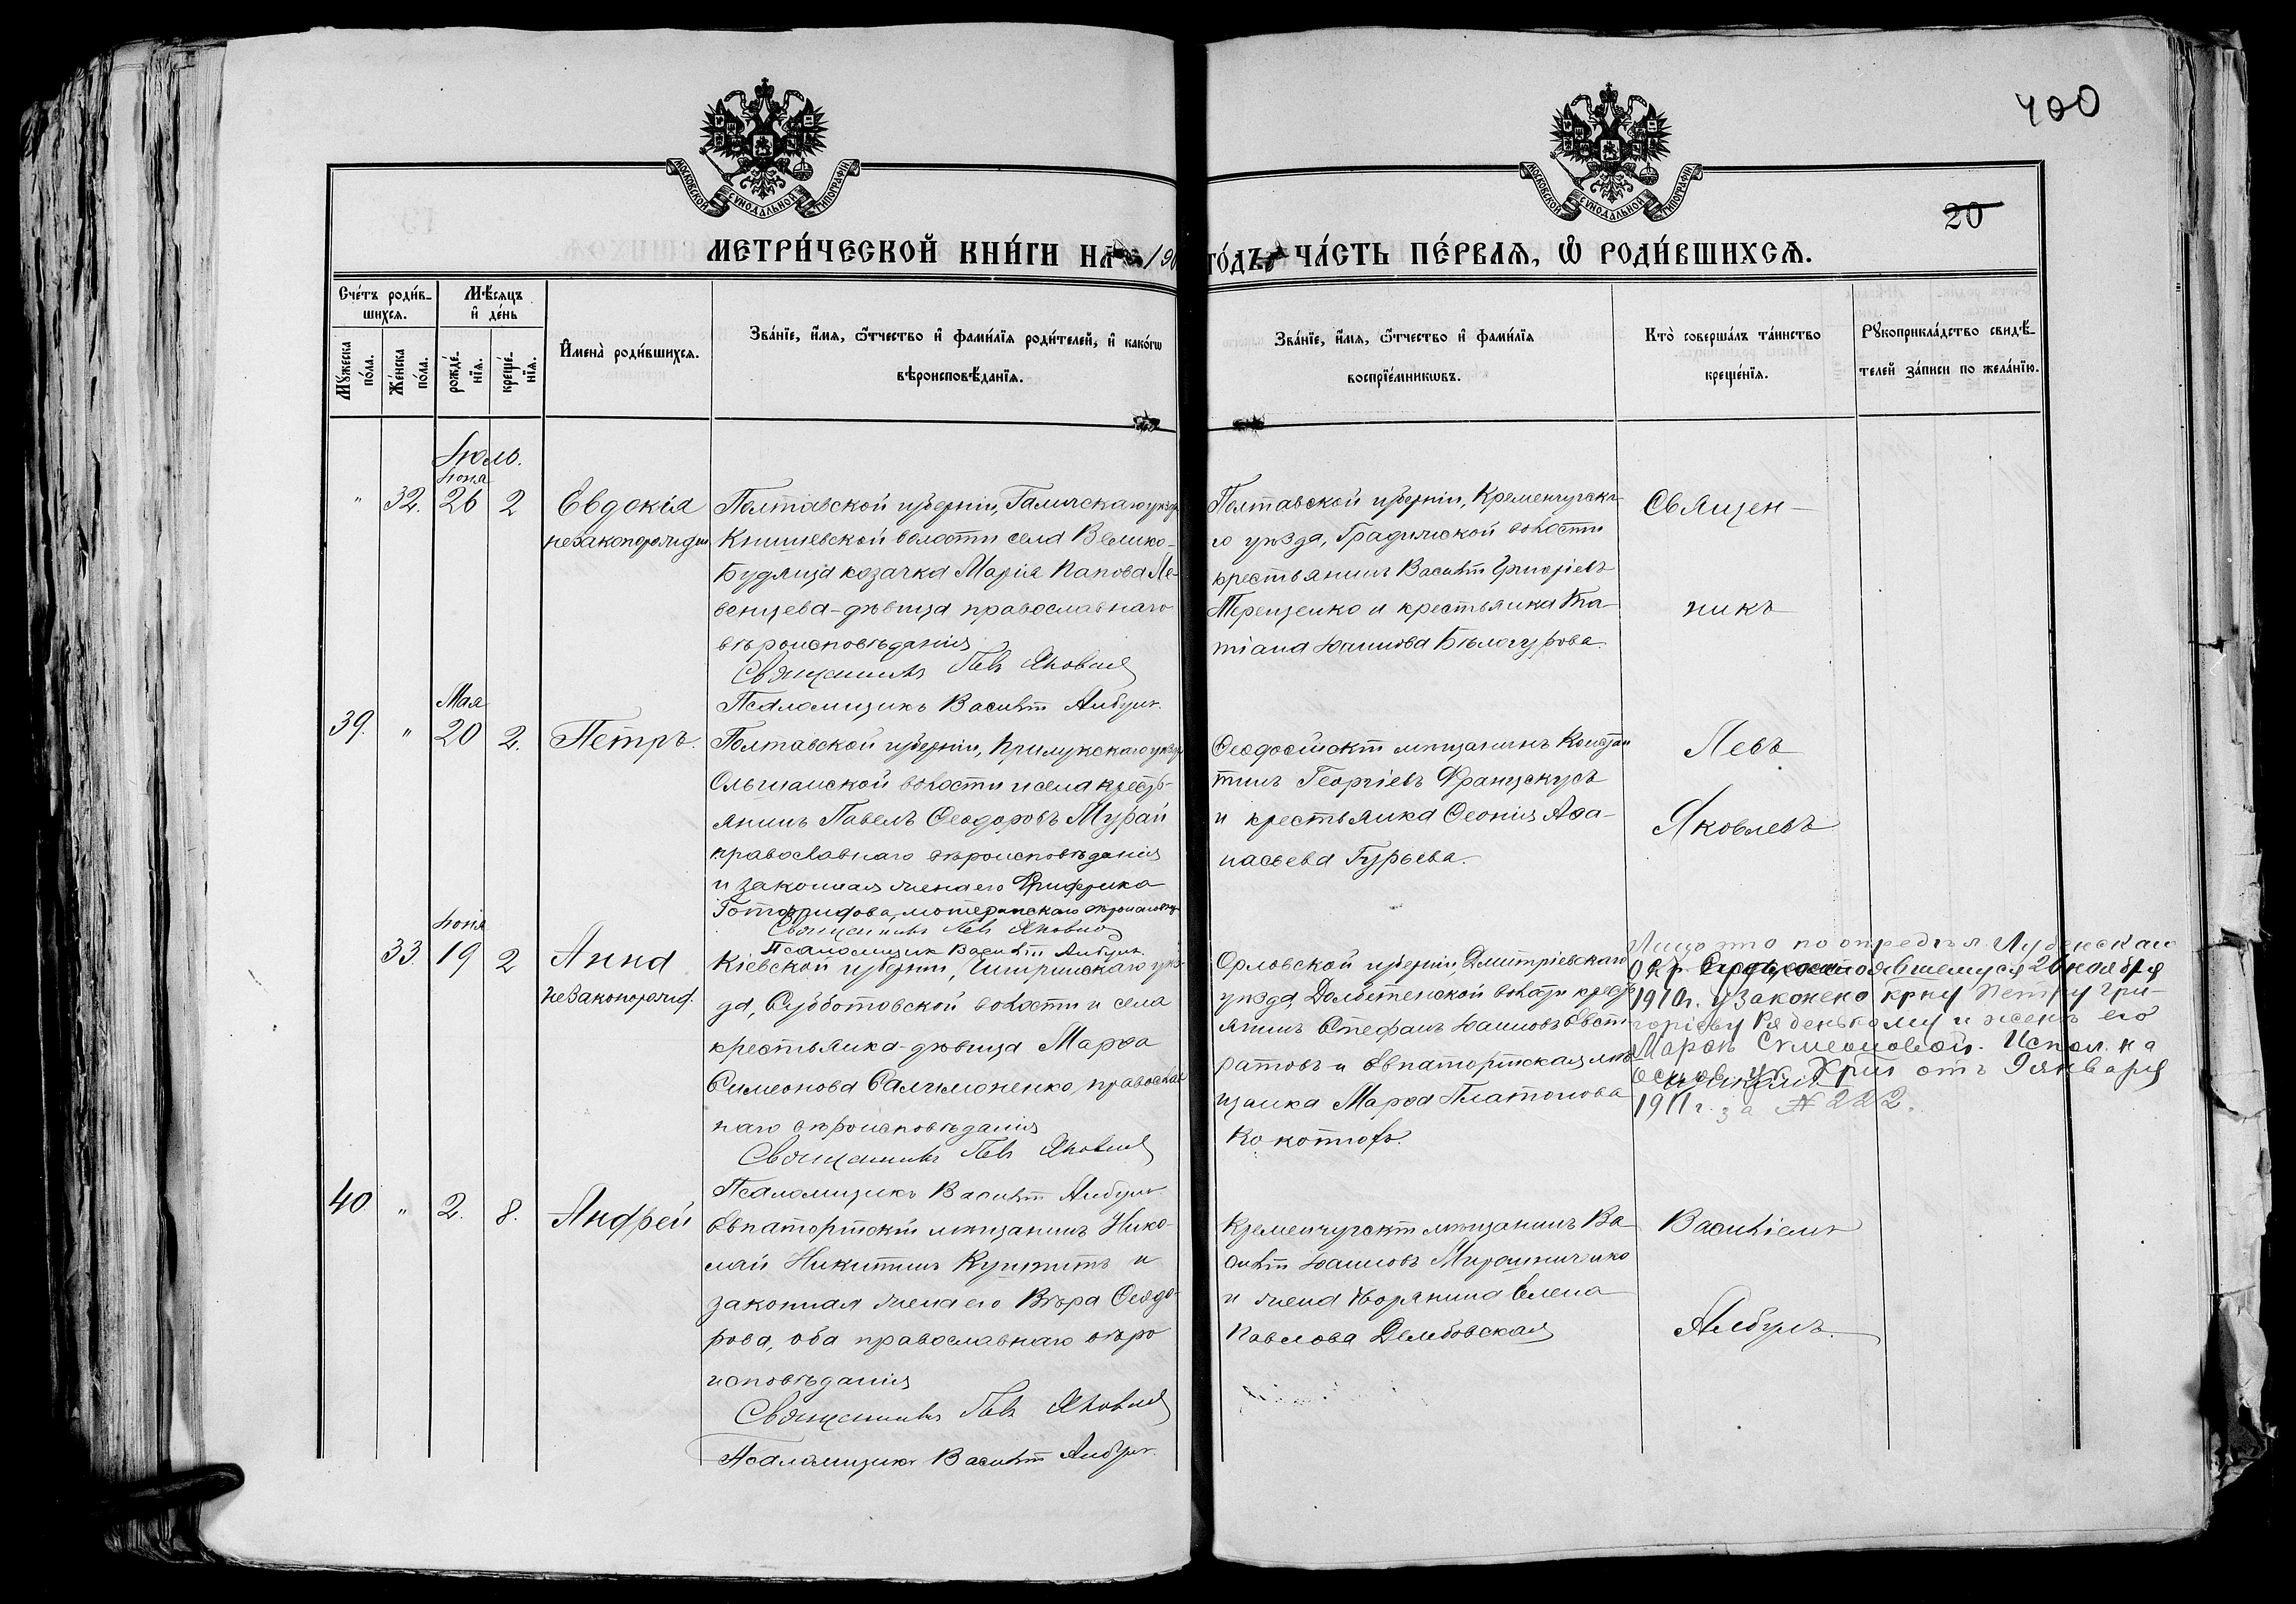 400
20
МОСКОВСКОЙ СѴНОДАЛЬНОЙ ТИПОГРАФІИ
МОСКОВСКОЙ СѴНОДАЛЬНОЙ ТИПОГРАФІИ
МЕТРИ́ЧЕСКОЙ КНИ́ГИ НА 190
ГО́ДЪ, ЧА́СТЬ ПЕ́РВАѦ, Ѡ҆ РОДИ́ВШИХСѦ.
Сче́тъ роди́в-
шихсѧ.
Мꙋ́жеска по́ла.
Же́нска по́ла.
Мѣ́сѧцъ
и҆ де́нь
рожде́-
нїѧ.
креще́-
нїѧ.
И҆мена̀ роди́вшихсѧ.
Зва́нїе, и҆́мѧ, ѻ҆́тчество и҆ фами́лїѧ роди́телей, и҆ како́гѡ
вѣроисповѣ́данїѧ.
Зва́нїе, и҆́мѧ, ѻ҆́тчество и҆ фами́лїѧ
воспрїе́мникѡвъ.
Кто̀ соверша́лъ та́инство
креще́нїѧ.
Рꙋкоприкла́дство свидѣ́-
телей за́писи по жела́нїю.
Іюль.
Іюня
" 32. 26 2
Евдокія
незаконорожден.
Полтавской губерніи, Гадячскаго уѣзда
Книшевской волости села Велико-
Будища козачка Марія Панова Ле-
венцева-дѣвица православнаго
вѣроисповѣданія
Священникъ Левъ Яковлевъ
Псаломщикъ Василій Албулъ.
Полтавской губерніи, Кременчугска-
го уѣзда, Градижской волости
крестьянинъ Василій Григоріевъ
Терещенко и крестьянка Та-
тіана Іаннова Бѣлогурова.
Священ-
никъ
Мая
39. " 20 2.
Петръ.
Полтавской губерніи, Прилукскаго уѣзда
Ольшанской волости и села кресть-
янинъ Павелъ Ѳеодоровъ Мурай
православнаго вѣроисповѣданія
и законная жена его Фридерика
Готфридова, лютеранскаго вѣроисповѣд.
Священникъ Левъ Яковлевъ
Псаломщикъ Василій Албулъ.
Ѳеодосійскій мѣщанинъ Констан
тинъ Георгіевъ Францскусъ
и крестьянка Ѳеонія Аѳа-
насьева Гурьева.
Левъ
Яковлевъ
Іюня
33. 19 2
Анна
незаконорожд.
Кіевской губерніи, Чигиринскаго уѣз-
да, Субботовской волости и села
крестьянка-дѣвица Марѳа
Симеонова Салимоненко, православ
наго вѣроисповѣданія
Священникъ Левъ Яковлевъ
Псаломщикъ Василій Албулъ
Орловской губерніи, Дмитріевскаго
уѣзда, волости кресть
янинъ Стефанъ Іанновъ Евст
ратовъ и Евпаторійская мѣ
щанка Марѳа Платонова
Лицо это по опредѣл. Лубенскаго
Окр. Суда, состоявшемуся 26 ноября
1910 г. узаконено крну Петру Гри-
горіеву Рѣденькому и женѣ его
Марѳѣ Симеоновой. Испол. на
основ. ук. Крит отъ 9 января
1911 г. за № 222.
40 " 2. 8.
Андрей
Евпаторійскій мѣщанинъ Нико-
лай Никитинъ и
законная жена его Вѣра Ѳеодо-
рова, оба православнаго вѣро
исповѣданія
Священникъ Левъ Яковлевъ
Псаломщикъ Василій Албулъ.
Кременчугскій мѣщанинъ Ва-
силій Іанновъ Мирошниченко
и жена дворянина Елена
Павлова Делбовская
Василіемъ
Албулъ.